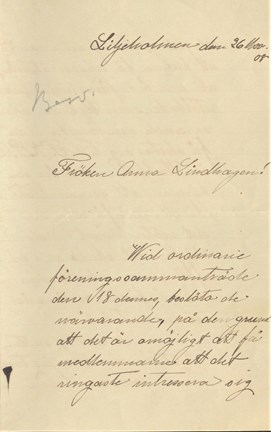 Liljeholmen den 26 Nov.
08
Besv.
Fröken Anna Lindhagen!
Wid ordinarie
föreningssammanträde
den 18 dennes, beslöto de
närvarande, på den grund
att det är omöjligt att få
medlemmarne att det
ringaste intressera sig